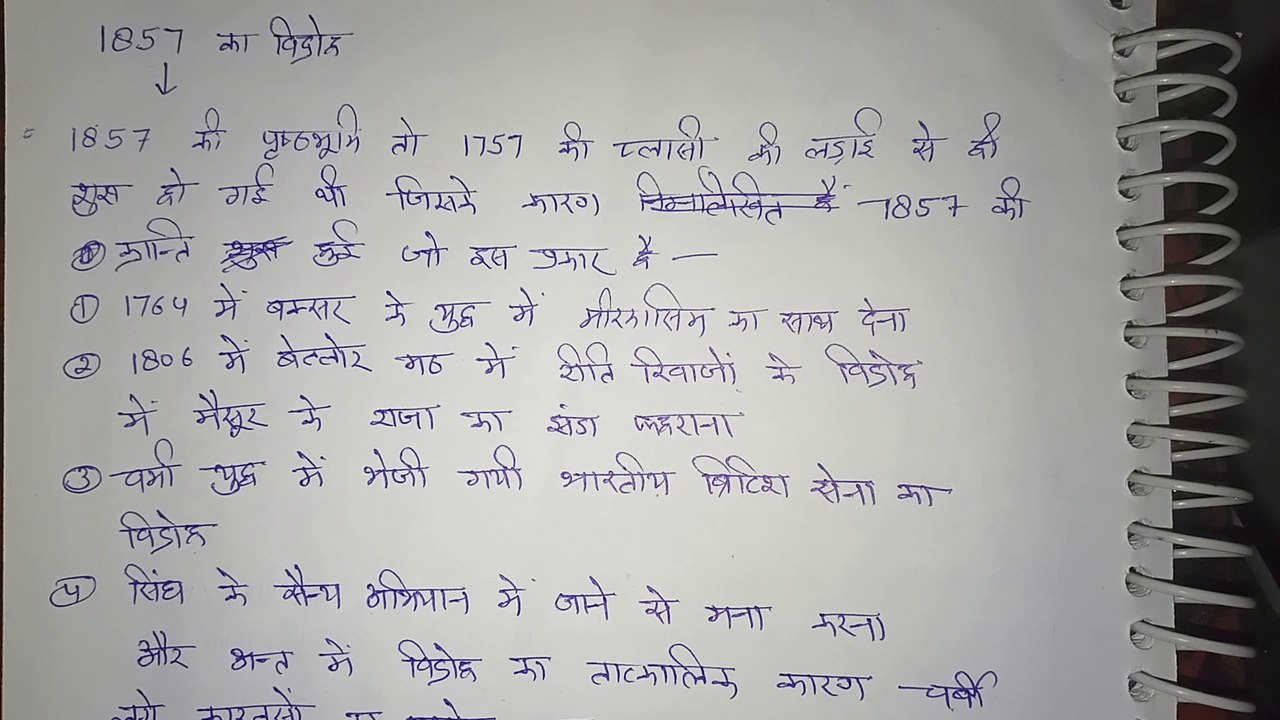 1857 का विद्रोह
↓
1857 की पृष्ठभूमि तो 1757 की प्लासी की लड़ाई से ही
शुरू हो गई थी जिसके कारण निम्नलिखित हैं 1857 की
क्रान्ति शुरू हुई जो इस प्रकार है —
① 1764 में बक्सर के युद्ध में मीरकासिम का साथ देना
② 1806 में बेल्लोर मठ में रीति रिवाजों के विद्रोह
में मैसूर के राजा का झंडा फहराना
③ वर्मा युद्ध में भेजी गयी भारतीय ब्रिटिश सेना का
विद्रोह
④ सिंध के सैन्य अभियान में जाने से मना करना
और अन्त में विद्रोह का तात्कालिक कारण चर्बी
लगे कारतूसों